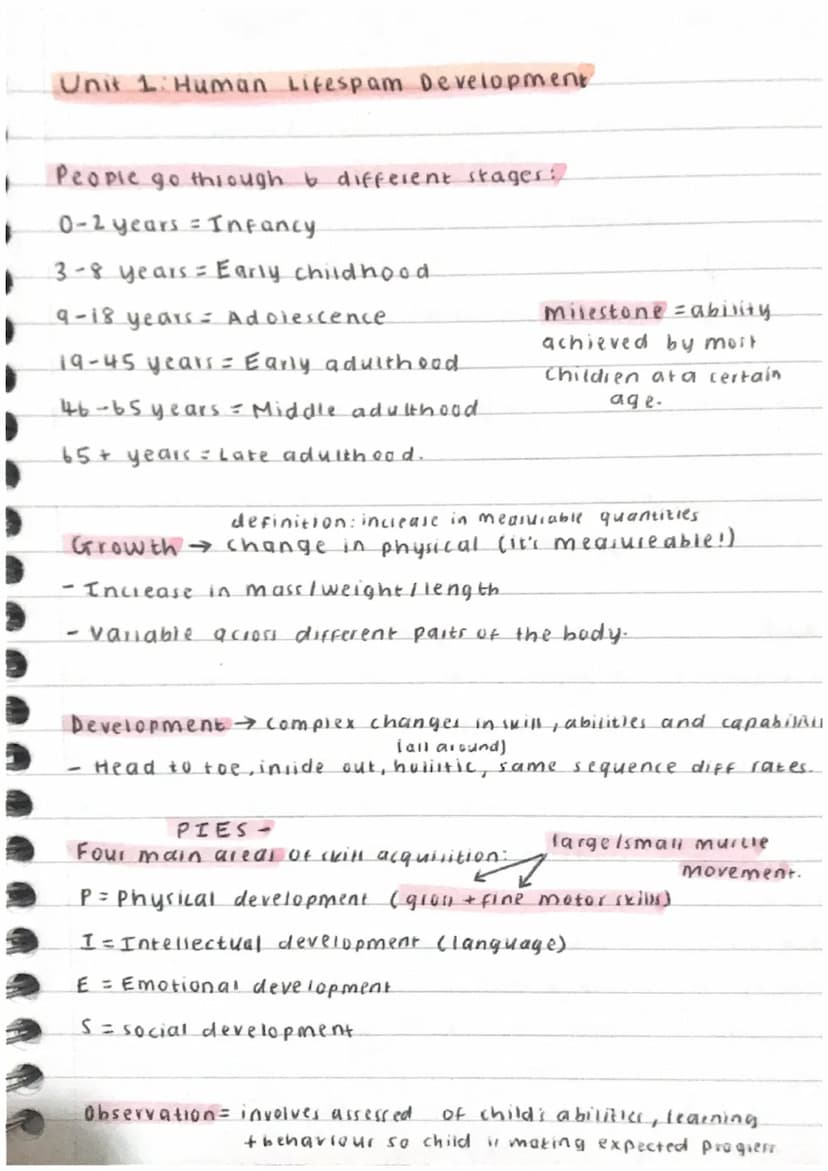 Unit 1: Human Lifespam Development
People go through 6 different stages:
0-2 years = Infancy
3-8 years = Early childhood
9-18 years = Adolescence
19-45 years = Early adulthood
46-65 years = Middle adulthood
65+ years = Late adulthood.
Milestone = ability
achieved by most
children at a certain
age.
definition: increase in measurable quantities
Growth → change in physical (it's measureable!)
- Increase in mass/weight/length
- Variable across different parts of the body.
Development → complex changes in skill, abilities and capabilities
(all around)
- Head to toe, inside out, holistic, same sequence diff rates.
PIES -
Four main areas of skill acquisition:
large/small muscle
movement.
P = Physical development (gross + fine motor skills)
I = Intellectual development (language)
E = Emotional development
S = social development
Observation = involves assessed of child's abilities, learning
+ behaviour so child is making expected progress